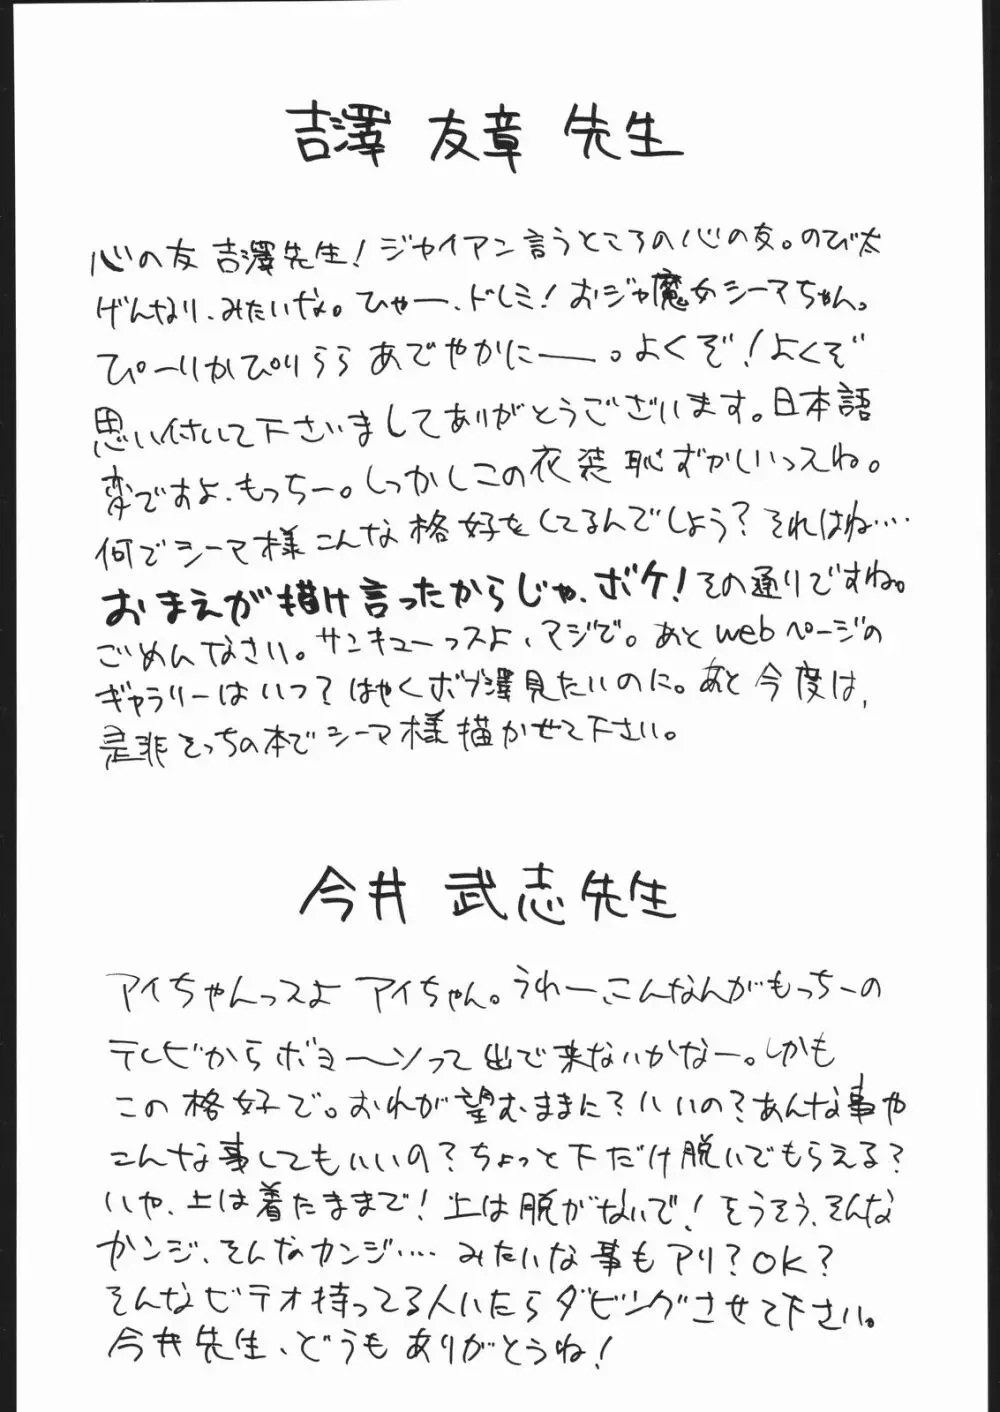 吉澤 友章 先生
心の友 吉澤先生！ジャイアン言うところの心の友。のび太
げんなり、みたいな。ひゃー、ドレミ！おジャ魔女シーマちゃん。
ぴーりかぴりらら あでやかにー。よくぞ！よくぞ
思い付いて下さいましてありがとうございます。日本語
変ですよ、もっちー。しっかしこの衣装恥ずかしいっスね。
何でシーマ様こんな格好をしてるんでしょう？それはね…
おまえが描け言ったからじゃ、ボケ！その通りですね。
ごめんなさい。サンキューっスよ、マジで。あと webページの
ギャラリーはいつ？はやくボブ澤見たいのに。あと今度は、
是非そっちの本でシーマ様描かせて下さい。
今井 武志先生
アイちゃんっスよ アイちゃん。うわー、こんなんがもっちーの
テレビからボヨ〜ンって出て来ないかなー。しかも
この格好で。おれが望むままに？いいの？あんな事や
こんな事してもいいの？ちょっと下だけ脱いでもらえる？
いや、上は着たままで！上は脱がないで！そうそう、そんな
カンジ、そんなカンジ…。みたいな事もアリ？OK？
そんなビデオ持ってる人いたらダビングさせて下さい。
今井先生、どうもありがとうね！